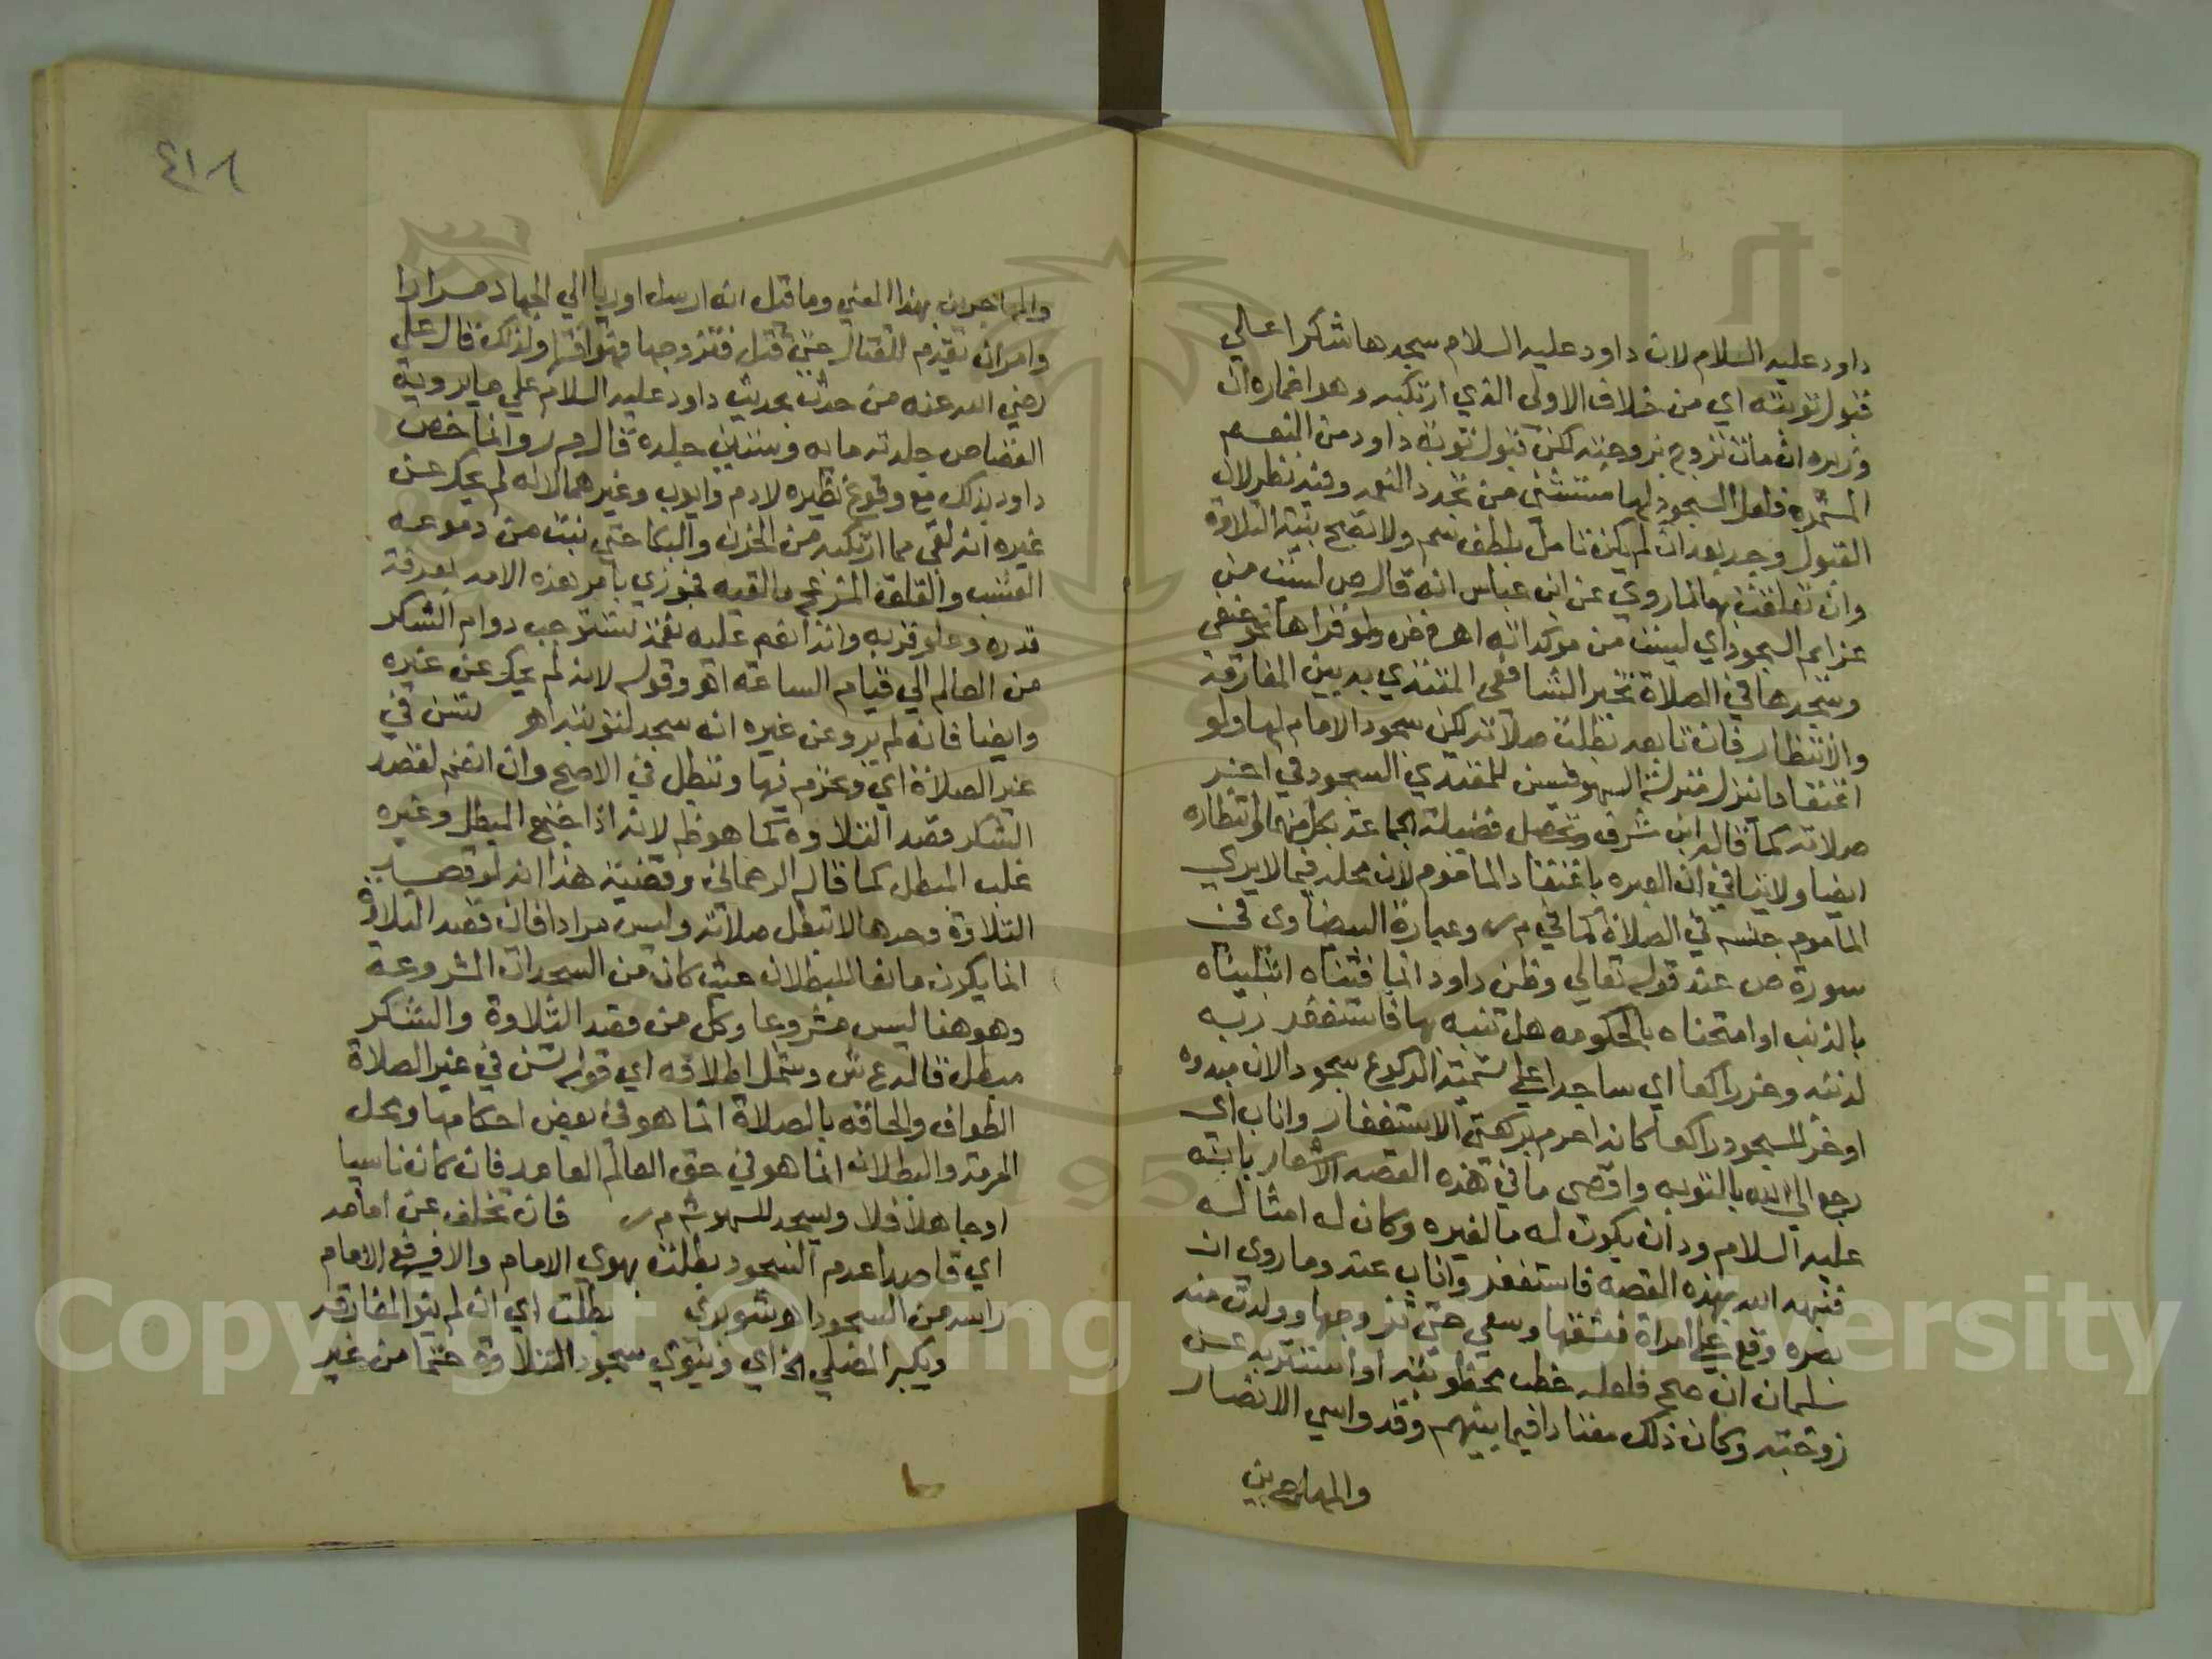 داود عليه السلام لان داود عليه السلام سجدها شكرا علي
قبول توبته اي من خلاف الاولى الذي ارتكبه وهو اضماره ان
وزيره ان مات تزوج بزوجته لكن قبول توبة داود من النعم
المستمرة فلعل السجود لها مستثنى من تجدد النعم وفيه نظر لان
القبول وجد بعد ان لم يكن تامل بلطف سم ولا تصح بنية التلاوة
وان تعلقت بها لما روي عن ابن عباس انه قال ص ليست من
عزايم السجود اي ليست من موكداته اهـ ولو قراها حنفي
وسجدها في الصلاة تخير الشافعي المقتدي به بين المفارقة
والانتظار فان تابعه بطلت صلاته لكن سجود الامام لها ولو
اعتقادا ينزل منزلة السهو فيسن للمقتدي السجود في اخر
صلاته كما قاله ابن شرف وتحصل فضيلة الجماعة بكل منهما وانتظاره
ايضا ولا ينافي ان العبرة باعتقاد الماموم لان محله فيما لا يرى
الماموم جنسه في الصلاة كما في م ر وعبارة البيضاوى في
سورة ص عند قوله تعالي وظن داود انما فتناه ابتليناه
بالذنب او امتحناه بالحكومه هل تنبه بها فاستغفر ربه
لذنبه وخر راكعا اي ساجدا علي تسمية الركوع سجودا لانه مبدوه
او خر للسجود راكعا كانه احرم بركعتي الاستغفار واناب اي
رجع الي الله بالتوبه واقصى ما في هذه القصه الاشعار بانه
عليه السلام ود ان يكون له ما لغيره وكان له امثاله
فنبهه الله بهذه القصه فاستغفر واناب عنه وما روى ان
بصره وقع علي امراة فعشقها وسعي حتي تزوجها وولدت منه
سليمان ان صح فلعله خطب مخطوبته او استنزله عن
زوجته وكان ذلك معتادا فيما بينهم وقد واسي الانصار
والمهاجرين
٤١٨
والمهاجرين بهذا المعني وما قيل انه ارسل اوريا الي الجهاد مرارا
وامر ان يقدم للقتال حتي قتل فتزوجها فهو افترا ولذلك قال علي
رضي الله عنه من حدث بحديث داود عليه السلام علي ما يرويه
القصاص جلدته مايه وستين جلدة قال م ر وانما خص
داود بذلك مع وقوع نظيره لادم وايوب وغيرهما لانه لم يحك عن
غيره انه لقي مما ارتكبه من الحزن والبكا حتي نبت من دموعه
العشب والقلق المزعج ما لقيه فجوزي بامر هذه الامه بمعرفة
قدره وعلو قربه وانه انعم عليه نعمة تستوجب دوام الشكر
من العالم الي قيام الساعة اهـ وقوله لانه لم يحك عن غيره
وايضا فانه لم يرو عن غيره انه سجد لتوبته اهـ تسن في
غير الصلاة اي وتحرم فيها وتبطل في الاصح وان انضم لقصد
الشكر قصد التلاوة كما هو ظ لانه اذا اجتمع المبطل وغيره
غلب المبطل كما قاله الرحماني وقضية هذا انه لو قصد
التلاوة وحدها لا تبطل صلاته وليس مرادا فان قصد التلاوة
انما يكون مانعا للبطلان حيث كان من السجدات المشروعة
وهو هنا ليس مشروعا وكل من قصد التلاوة والشكر
مبطل قاله ع ش وشمل اطلاقه اي قوله تسن في غير الصلاة
الطواف والحاقه بالصلاة انما هو في بعض احكامها ومحل
الحرمة والبطلان انما هو في حق العالم العامد فان كان ناسيا
او جاهلا فلا ويسجد للسهو ش م ر فان تخلف عن امامه
اي قاصدا عدم السجود بطلت بهوي الامام والا فبرفع الامام
راسه من السجود اهـ شوبري بطلت اي ان لم ينو المفارقه
ويكبر المصلي الخ اي وينوي سجود التلاوة حتما من غير
Copyright © King Saud University